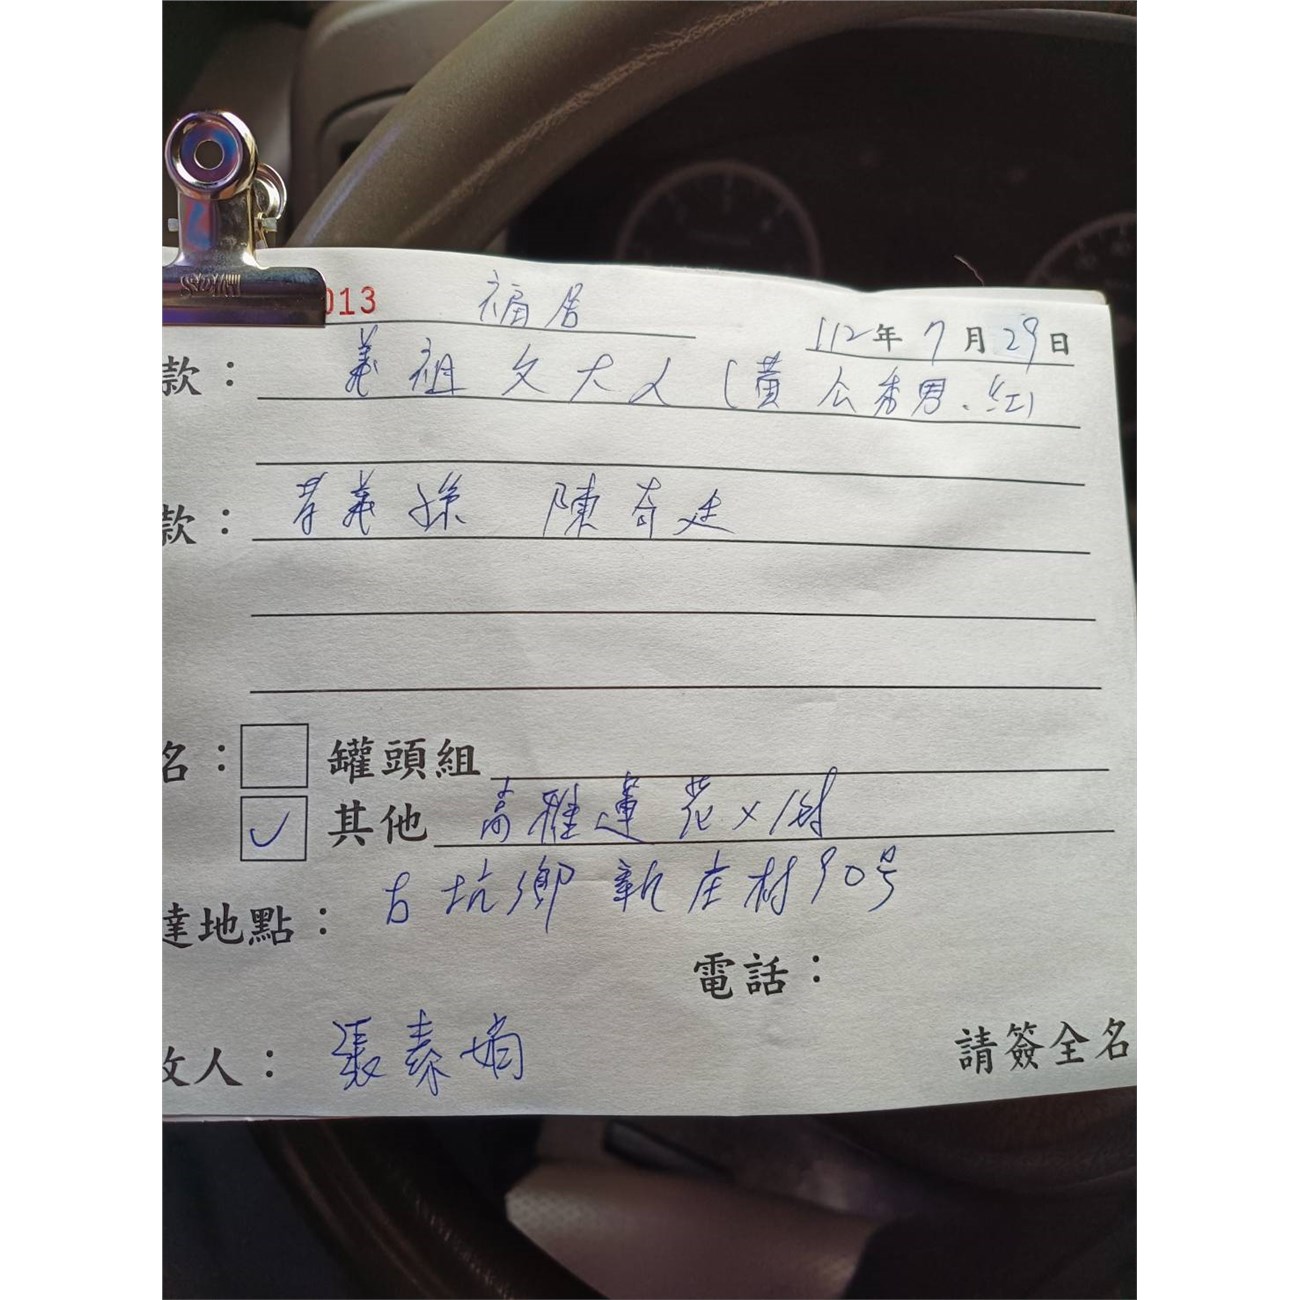 013 福居
112年7月29日
款： 義祖父大人（黃公秀男、紅）
款： 孝義孫 陳奇廷
名： 罐頭組
✓ 其他 高雅蓮花×1對
達地點： 古坑鄉新庄村90號
電話：
收人： 張素娟
請簽全名